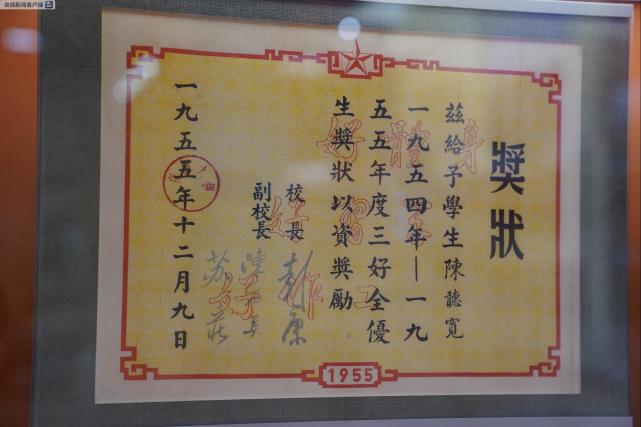 央视新闻客户端
獎狀
茲給予學生陳聽寬
一九五四年—一九
五五年度三好全優
生獎狀以資獎勵
校長
副校長
一九五五年十二月九日
身體好
學習好
工作好
1955